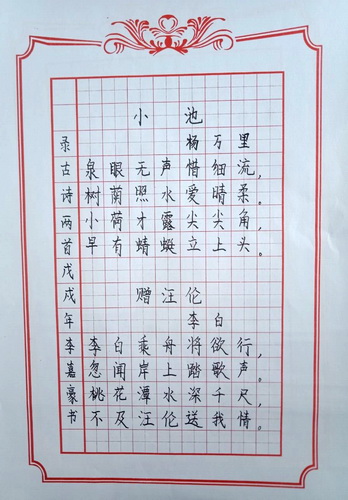 小池
杨万里
泉眼无声惜细流，
树荫照水爱晴柔。
小荷才露尖尖角，
早有蜻蜓立上头。
赠汪伦
李白
李白乘舟将欲行，
忽闻岸上踏歌声。
桃花潭水深千尺，
不及汪伦送我情。
录古诗两首戊戌年李嘉豪书